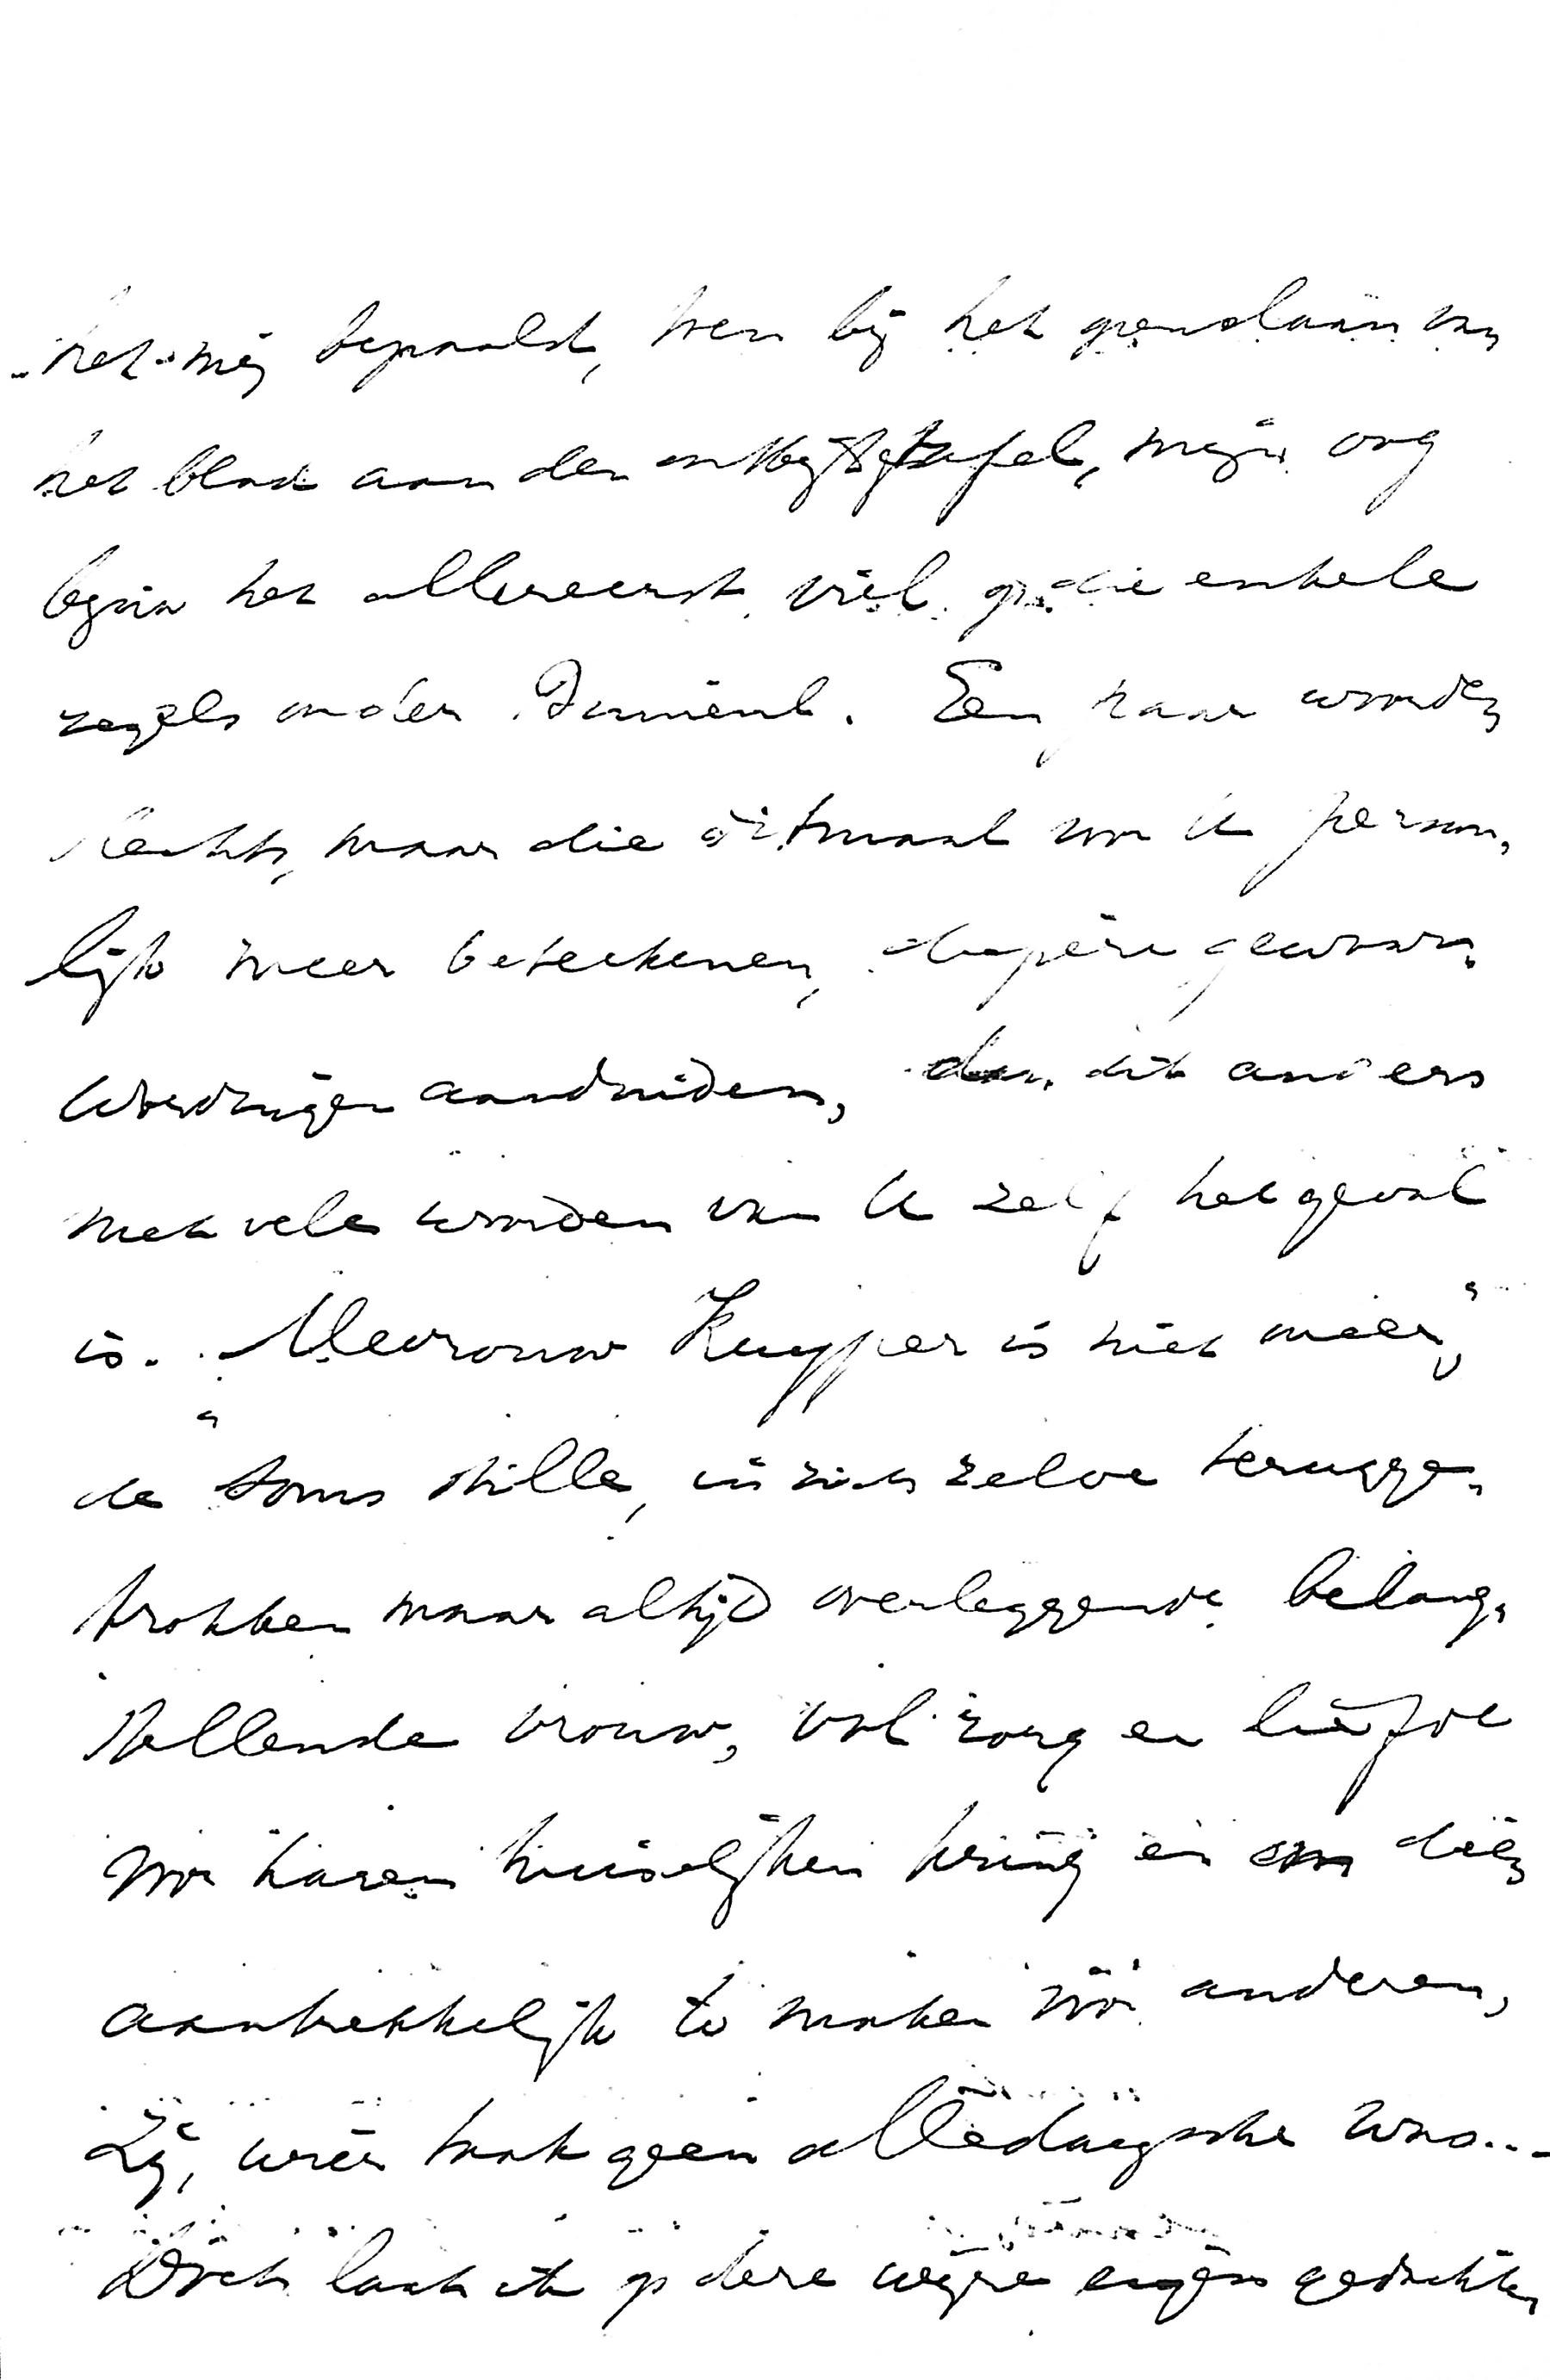 het mij bepaald, toen bij het opendoen van
het blad aan den ontbijttafel, mijn oog
het allereerst viel op die enkele
regels onder Binnenl. Een paar woorden
slechts, maar die ditmaal voor U persoon-
lijk meer beteekenen, diepere gewaar-
wordingen aanduiden, dan dit anders
met vele woorden van U zelf het geval
is. Mevrouw Kuyper is niet meer,"
de soms stille, in zich zelve terugge-
trokken maar altijd overleggende belang-
stellende vrouw, vol zorg en liefde
voor haren huiselijken kring en om dien
aantrekkelijk te maken voor anderen,
Zij, wier taak geen alledaagsche was...
Doch laat ik op deze wijze eigen gedachten